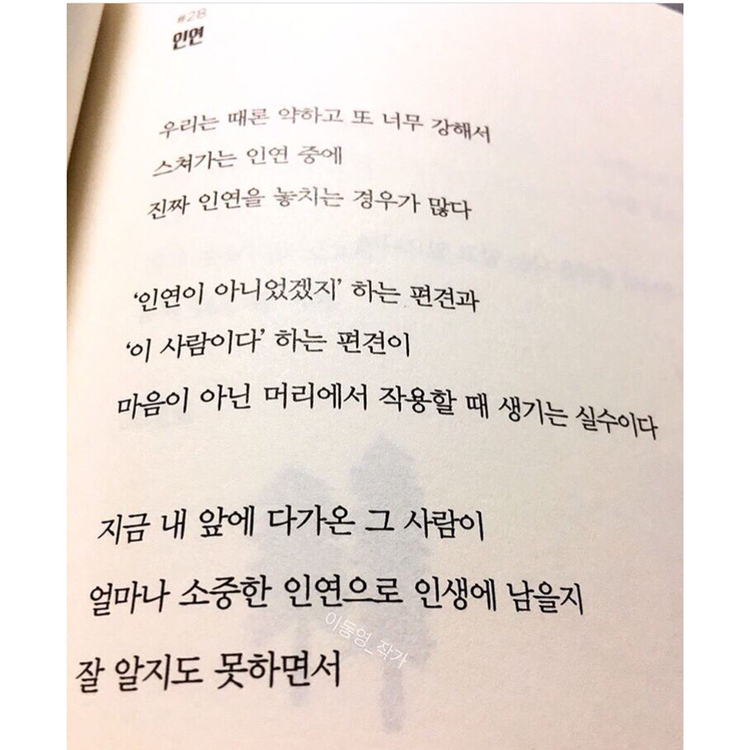 #28
인연
우리는 때론 약하고 또 너무 강해서
스쳐가는 인연 중에
진짜 인연을 놓치는 경우가 많다
‘인연이 아니었겠지’ 하는 편견과
‘이 사람이다’ 하는 편견이
마음이 아닌 머리에서 작용할 때 생기는 실수이다
지금 내 앞에 다가온 그 사람이
얼마나 소중한 인연으로 인생에 남을지
이동영_작가
잘 알지도 못하면서